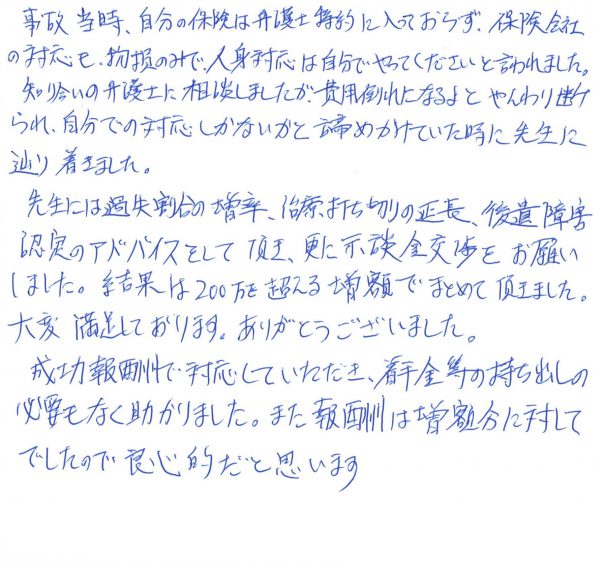 事故当時、自分の保険は弁護士特約に入っておらず、保険会社
の対応も、物損のみで、人身対応は自分でやってくださいと言われました。
知り合いの弁護士に相談しましたが、費用倒れになるよとやんわり断け
られ、自分での対応しかないかと諦めかけていた時に先生に
辿り着きました。
先生には過失割合の増率、治療打ち切りの延長、後遺障害
認定のアドバイスをして頂き、更に示談金交渉をお願い
しました。結果は200万を超える増額でまとめて頂きました。
大変満足しております。ありがとうございました。
成功報酬で対応していただき、着手金等の持ち出しの
必要もなく助かりました。また報酬は増額分に対して
でしたので良心的だと思います